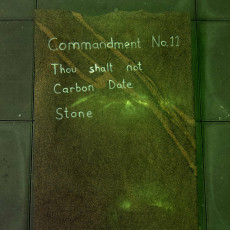 Commandment No.11
Thou shalt not
Carbon Date
Stone